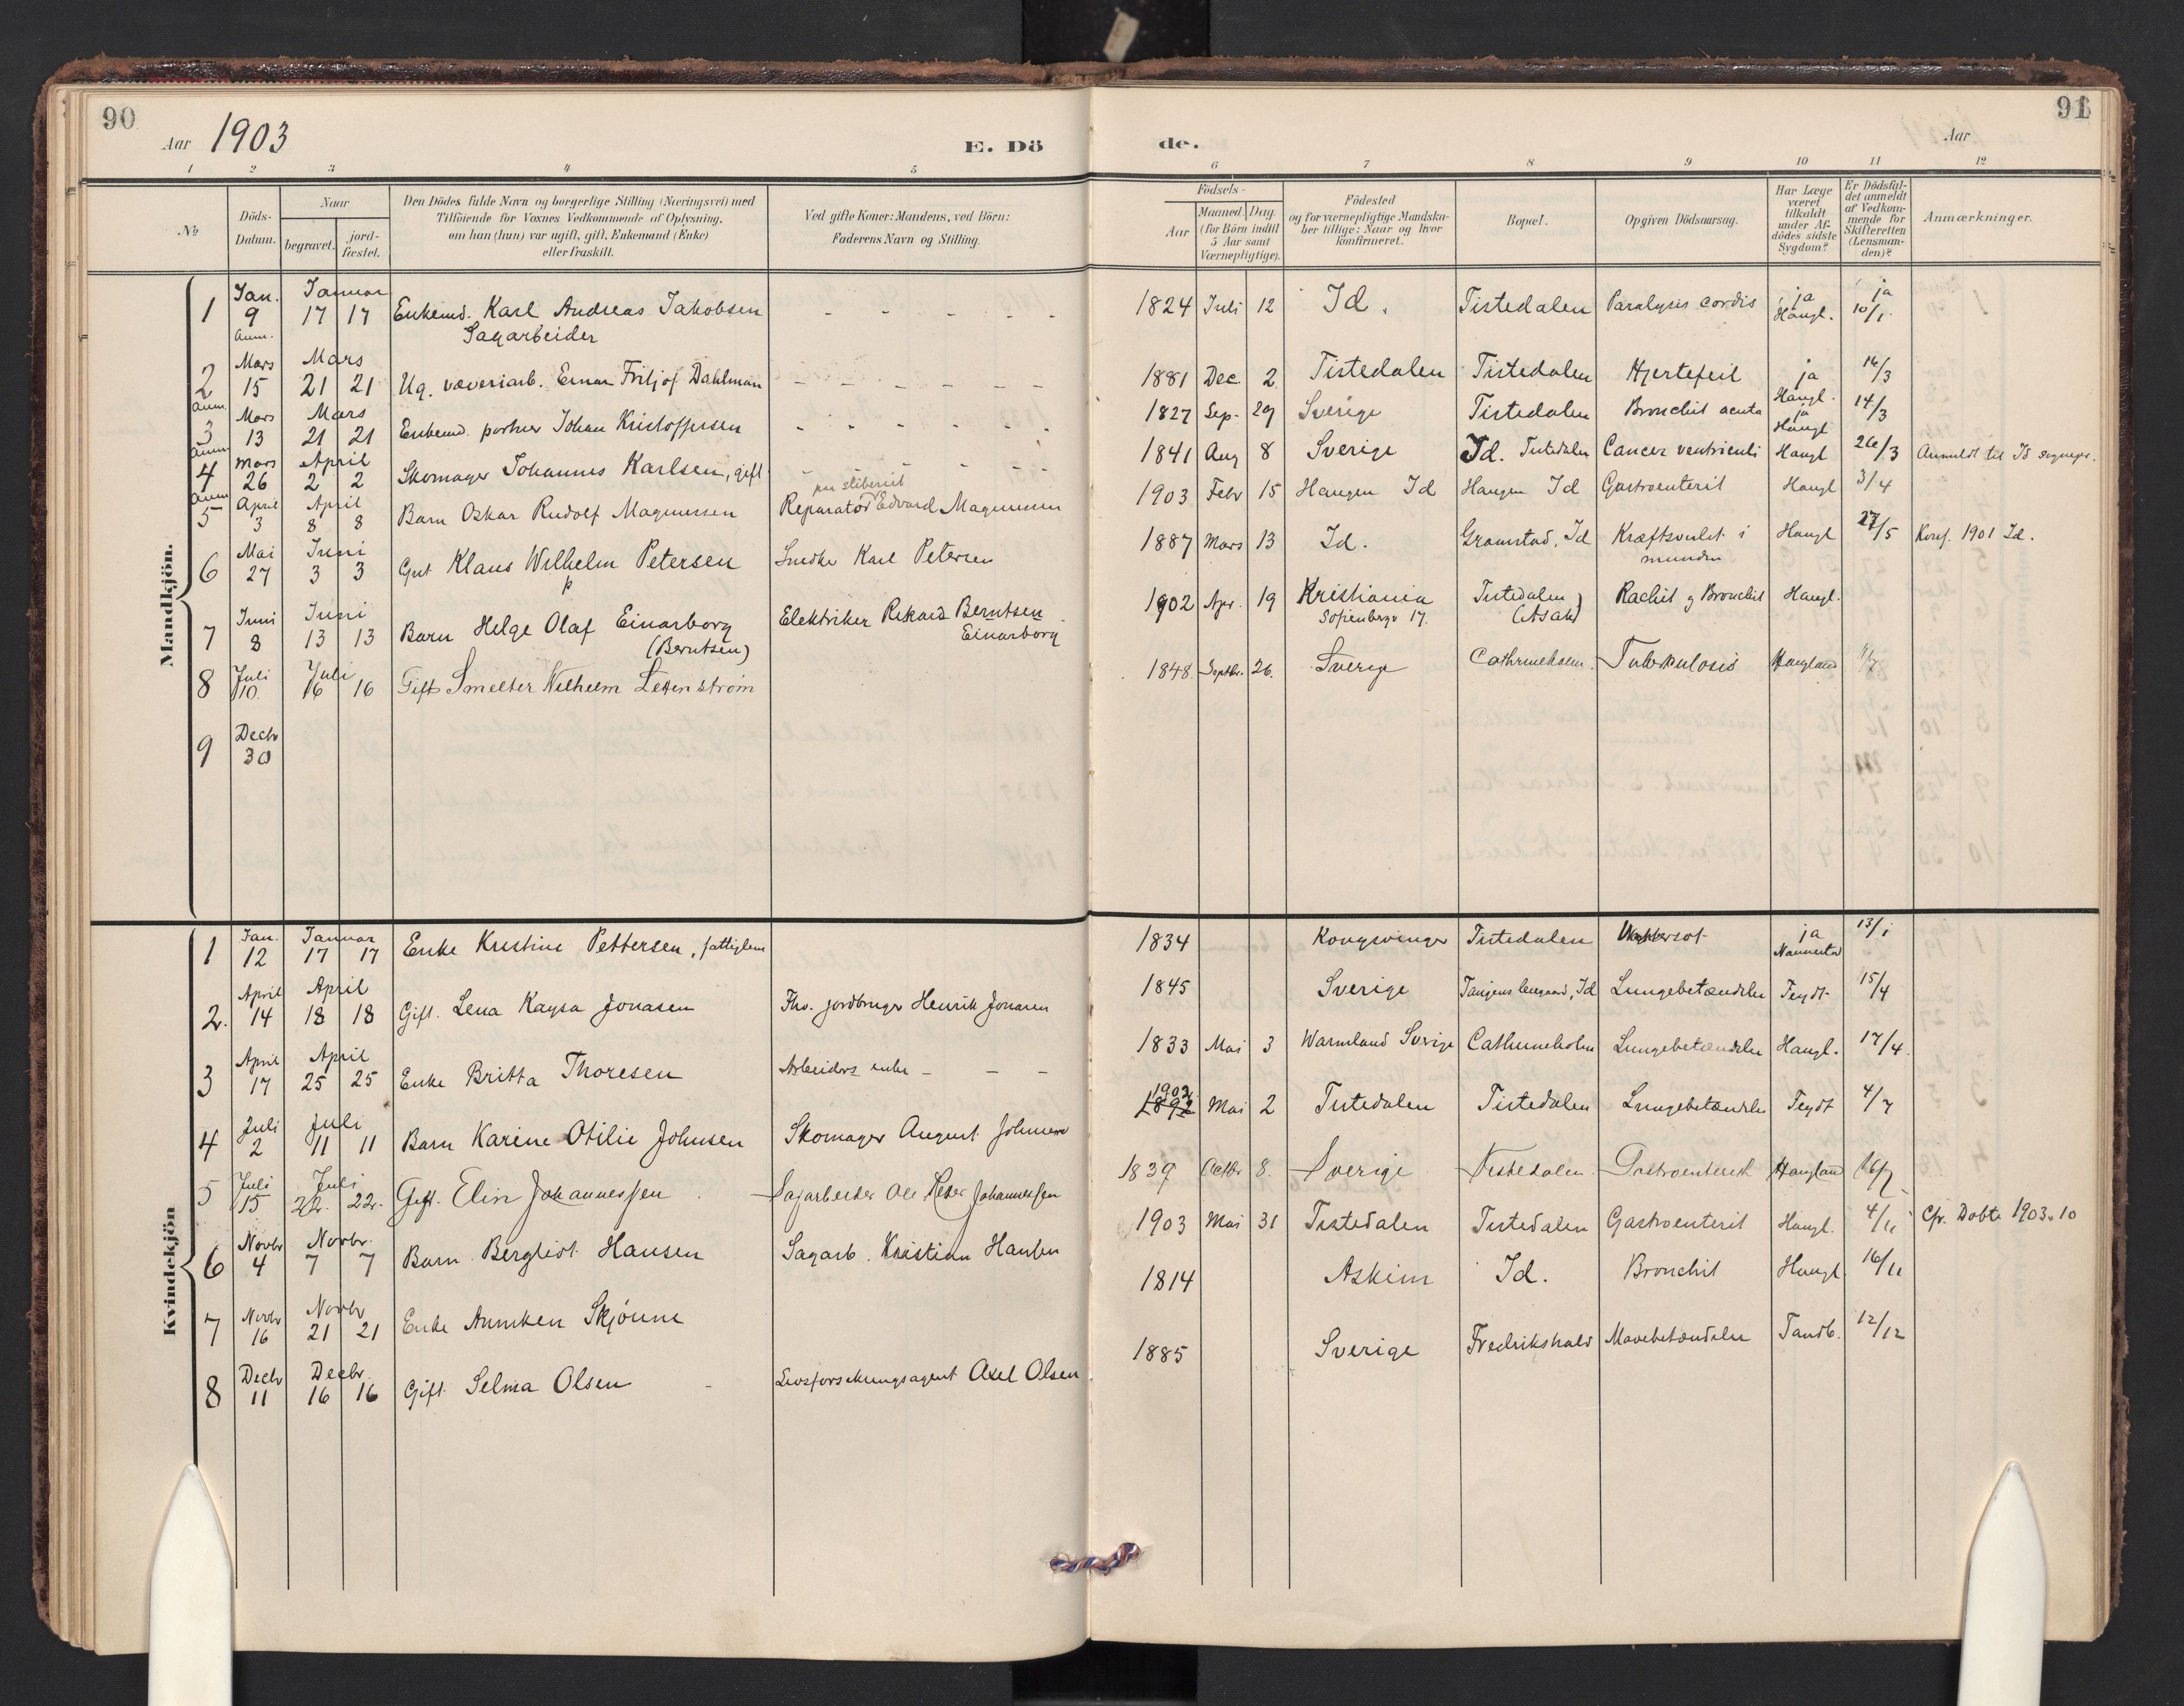 90
91
Aar 1903
E. Dö
de.
Aar
1 2 3 4 5 6 7 8 9 10 11 12
№
Döds-
Datum.
Naar
begravet.
jord-
fæstet.
Den Dödes fulde Navn og borgerlige Stilling (Næringsvei) med
Tilföiende for Voxnes Vedkommende af Oplysning,
om han (hun) var ugift, gift, Enkemand (Enke)
eller fraskilt.
Ved gifte Koner: Mandens, ved Börn:
Faderens Navn og Stilling.
Födsels-
Aar
Maaned. Dag.
(for Börn indtil
5 Aar samt
Værnepligtige).
Födested
og for værnepligtige Mandska-
ber tillige: Naar og hvor
konfirmeret.
Bopæl.
Opgiven Dödsaarsag.
Har Læge
været
tilkaldt
under Af-
dödes sidste
Sygdom?
Er Dödsfal-
det anmeldt
af Vedkom-
mende for
Skifteretten
(Lensman-
den)?
Anmærkninger.
Mandkjön.
1 Jan. 9 Januar 17 17 Enkemd. Karl Andreas Jakobsen - - - - - 1824 Juli 12 Id. Tistedalen Paralysis cordis ja Haugl. ja 10/1
anm. Sagarbeider
2 Mars 15 Mars 21 21 Ug. væveriarb. Einar Fritjof Dahlman - - - - - - 1881 Dec. 2 Tistedalen Tistedalen Hjertefeil ja Haugl. 16/3
anm.
3 Mars 13 Mars 21 21 Enkemd. portner Johan Kristoffersen - - - - - - 1827 Sep. 29 Sverige Tistedalen Bronchit acuta ja Haugl 14/3
anm.
4 Mars 26 April 2 2 Skomager Johannes Karlsen, gift - - - - - - 1841 Aug 8 Sverige Id. Tistedalen Cancer ventriculi Haugl 26/3 Anmeldt til Id sognepr.
anm
5 April 3 April 8 8 Barn Oskar Rudolf Magnussen Reparatør Edvard Magnussen 1903 Febr 15 Haugen Id Haugen Id Gastroenterit Haugl 3/4
6 Mai 27 Juni 3 3 Gut Klaus Wilhelm Petersen Snedker Karl Petersen 1887 Mars 13 Id. Gramstad, Id Kræftsvulst i munden Haugl 27/5 Konf. 1901 Id.
7 Juni 8 Juni 13 13 Barn Helge Olaf Einarborg (Berntsen) Elektriker Rikard Berntsen Einarborg 1902 Apr. 19 Kristiania Sofienbergv 17. Tistedalen (Asak) Rachit og Bronchit Haugl.
8 Juli 10. Juli 16 16 Gift Smelter Wilhelm Lettenstrøm 1848. Septbr. 26. Sverige Cathrineholm. Tuberkulosis Haugland 11/7
9 Decbr 30
Kvindekjön
1 Jan. 12 Januar 17 17 Enke Kristine Pettersen, fattiglem 1834 Kongsvinger Tistedalen Vattersot ja Nannestad 13/1
2. April 14 April 18 18 Gift. Lena Kaysa Jonasen Fhv. jordbruger Henrik Jonasen 1845 Sverige Id Lungebetændelse Feydt 15/4
3 April 17 April 25 25 Enke Britta Thoresen Arbeiders enke - - - 1833 Mai 3 Warmland Sverige Cathrineholm Lungebetændelse Haugl. 17/4
4 Juli 2 Juli 11 11 Barn Karine Otilie Johnsen Skomager August Johnsen 1902 Mai 2 Tistedalen Tistedalen Lungebetændelse Feydt 4/7
5 Juli 15 Juli 22. 22. Gift. Elin Johannessen Sagarbeider Ole Peter Johannessen 1839 Octbr 8. Sverige Tistedalen Gastroenterit Haugland 16/7
6 Novbr 4 Novbr. 7 7 Barn Bergliot Hansen Sagarb. Kristian Hansen 1903 Mai 31 Tistedalen Tistedalen Gastroenterit Haugl. 4/11 Cfr. Døbte 1903. 10
7 Novbr 16 Novbr 21 21 Enke Anniken Skjønne 1814 Askim Id. Bronchit Haugl 16/11
8 Decbr 11 Decbr. 16 16 Gift Selma Olsen - Livsforsikringsagent Axel Olsen. 1885 Sverige Fredrikshald Mavebetændelse Tandb. 12/12